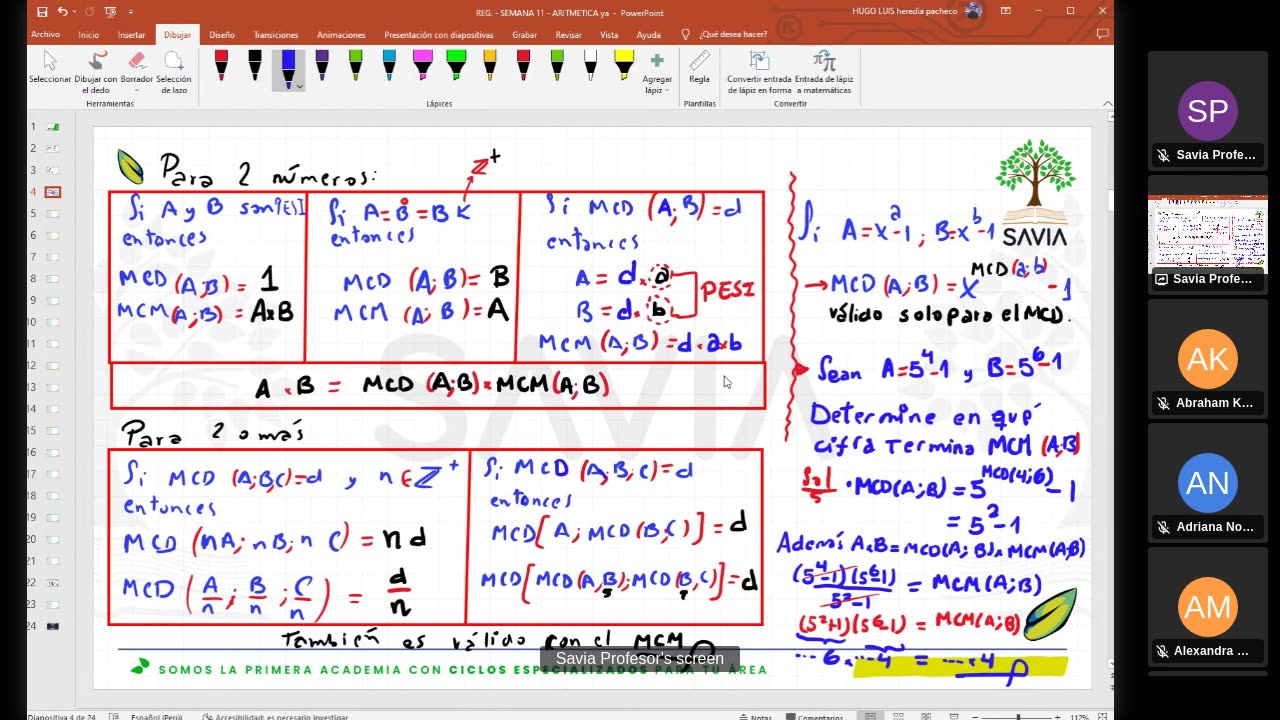 REG. - SEMANA 11 - ARITMETICA ya - PowerPoint
HUGO LUIS heredia pacheco
Archivo Inicio Insertar Dibujar Diseño Transiciones Animaciones Presentación con diapositivas Grabar Revisar Vista Ayuda ¿Qué desea hacer?
Seleccionar Dibujar con el dedo Borrador Selección de lazo Agregar lápiz Regla Convertir entrada de lápiz en forma Entrada de lápiz a matemáticas
Herramientas Lápices Plantillas Convertir
1
2
3
4
5
6
7
8
9
10
11
12
13
14
15
16
17
18
19
20
21
22
23
24
Para 2 números:
Si A y B son PESI
entonces
MCD (A;B) = 1
MCM (A;B) = A×B
Z⁺
Si A = B̊ = B K
entonces
MCD (A;B) = B
MCM (A;B) = A
Si MCD (A;B) = d
entonces
A = d.a
B = d.b
PESI
MCM (A;B) = d.a×b
A × B = MCD (A;B) × MCM (A;B)
Para 2 o más
Si MCD (A;B,C)=d y n ∈ Z⁺
entonces
MCD (nA; nB; n C) = nd
MCD (A/n ; B/n ; C/n) = d/n
Si MCD (A;B;C)=d
entonces
MCD[A; MCD (B;C)] = d
MCD[MCD(A,B);MCD(B,C)]=d
También es válido con el MCM
SAVIA
Si A=x^a-1 ; B=x^b-1
→ MCD (A;B) = x^MCD(a;b) -1
válido solo para el MCD.
Sean A=5⁴-1 y B=5⁶-1
Determine en qué
cifra termina MCM (A;B)
Sol · MCD(A;B) = 5^MCD(4;6) - 1
= 5²-1
Además A×B = MCD(A;B)×MCM(A;B)
(5⁴-1)(5⁶-1)/5²-1 = MCM(A;B)
(5²+1)(5⁶-1) = MCM(A;B)
...6 × ...4 = ...4
SOMOS LA PRIMERA ACADEMIA CON CICLOS ESPECIALIZADOS PARA TU ÁREA
Savia Profesor's screen
Diapositiva 4 de 24 Español (Perú) Accesibilidad: es necesario investigar Notas Comentarios 112%
SP
Savia Profe...
Savia Profe...
AK
Abraham K...
AN
Adriana No...
AM
Alexandra ...